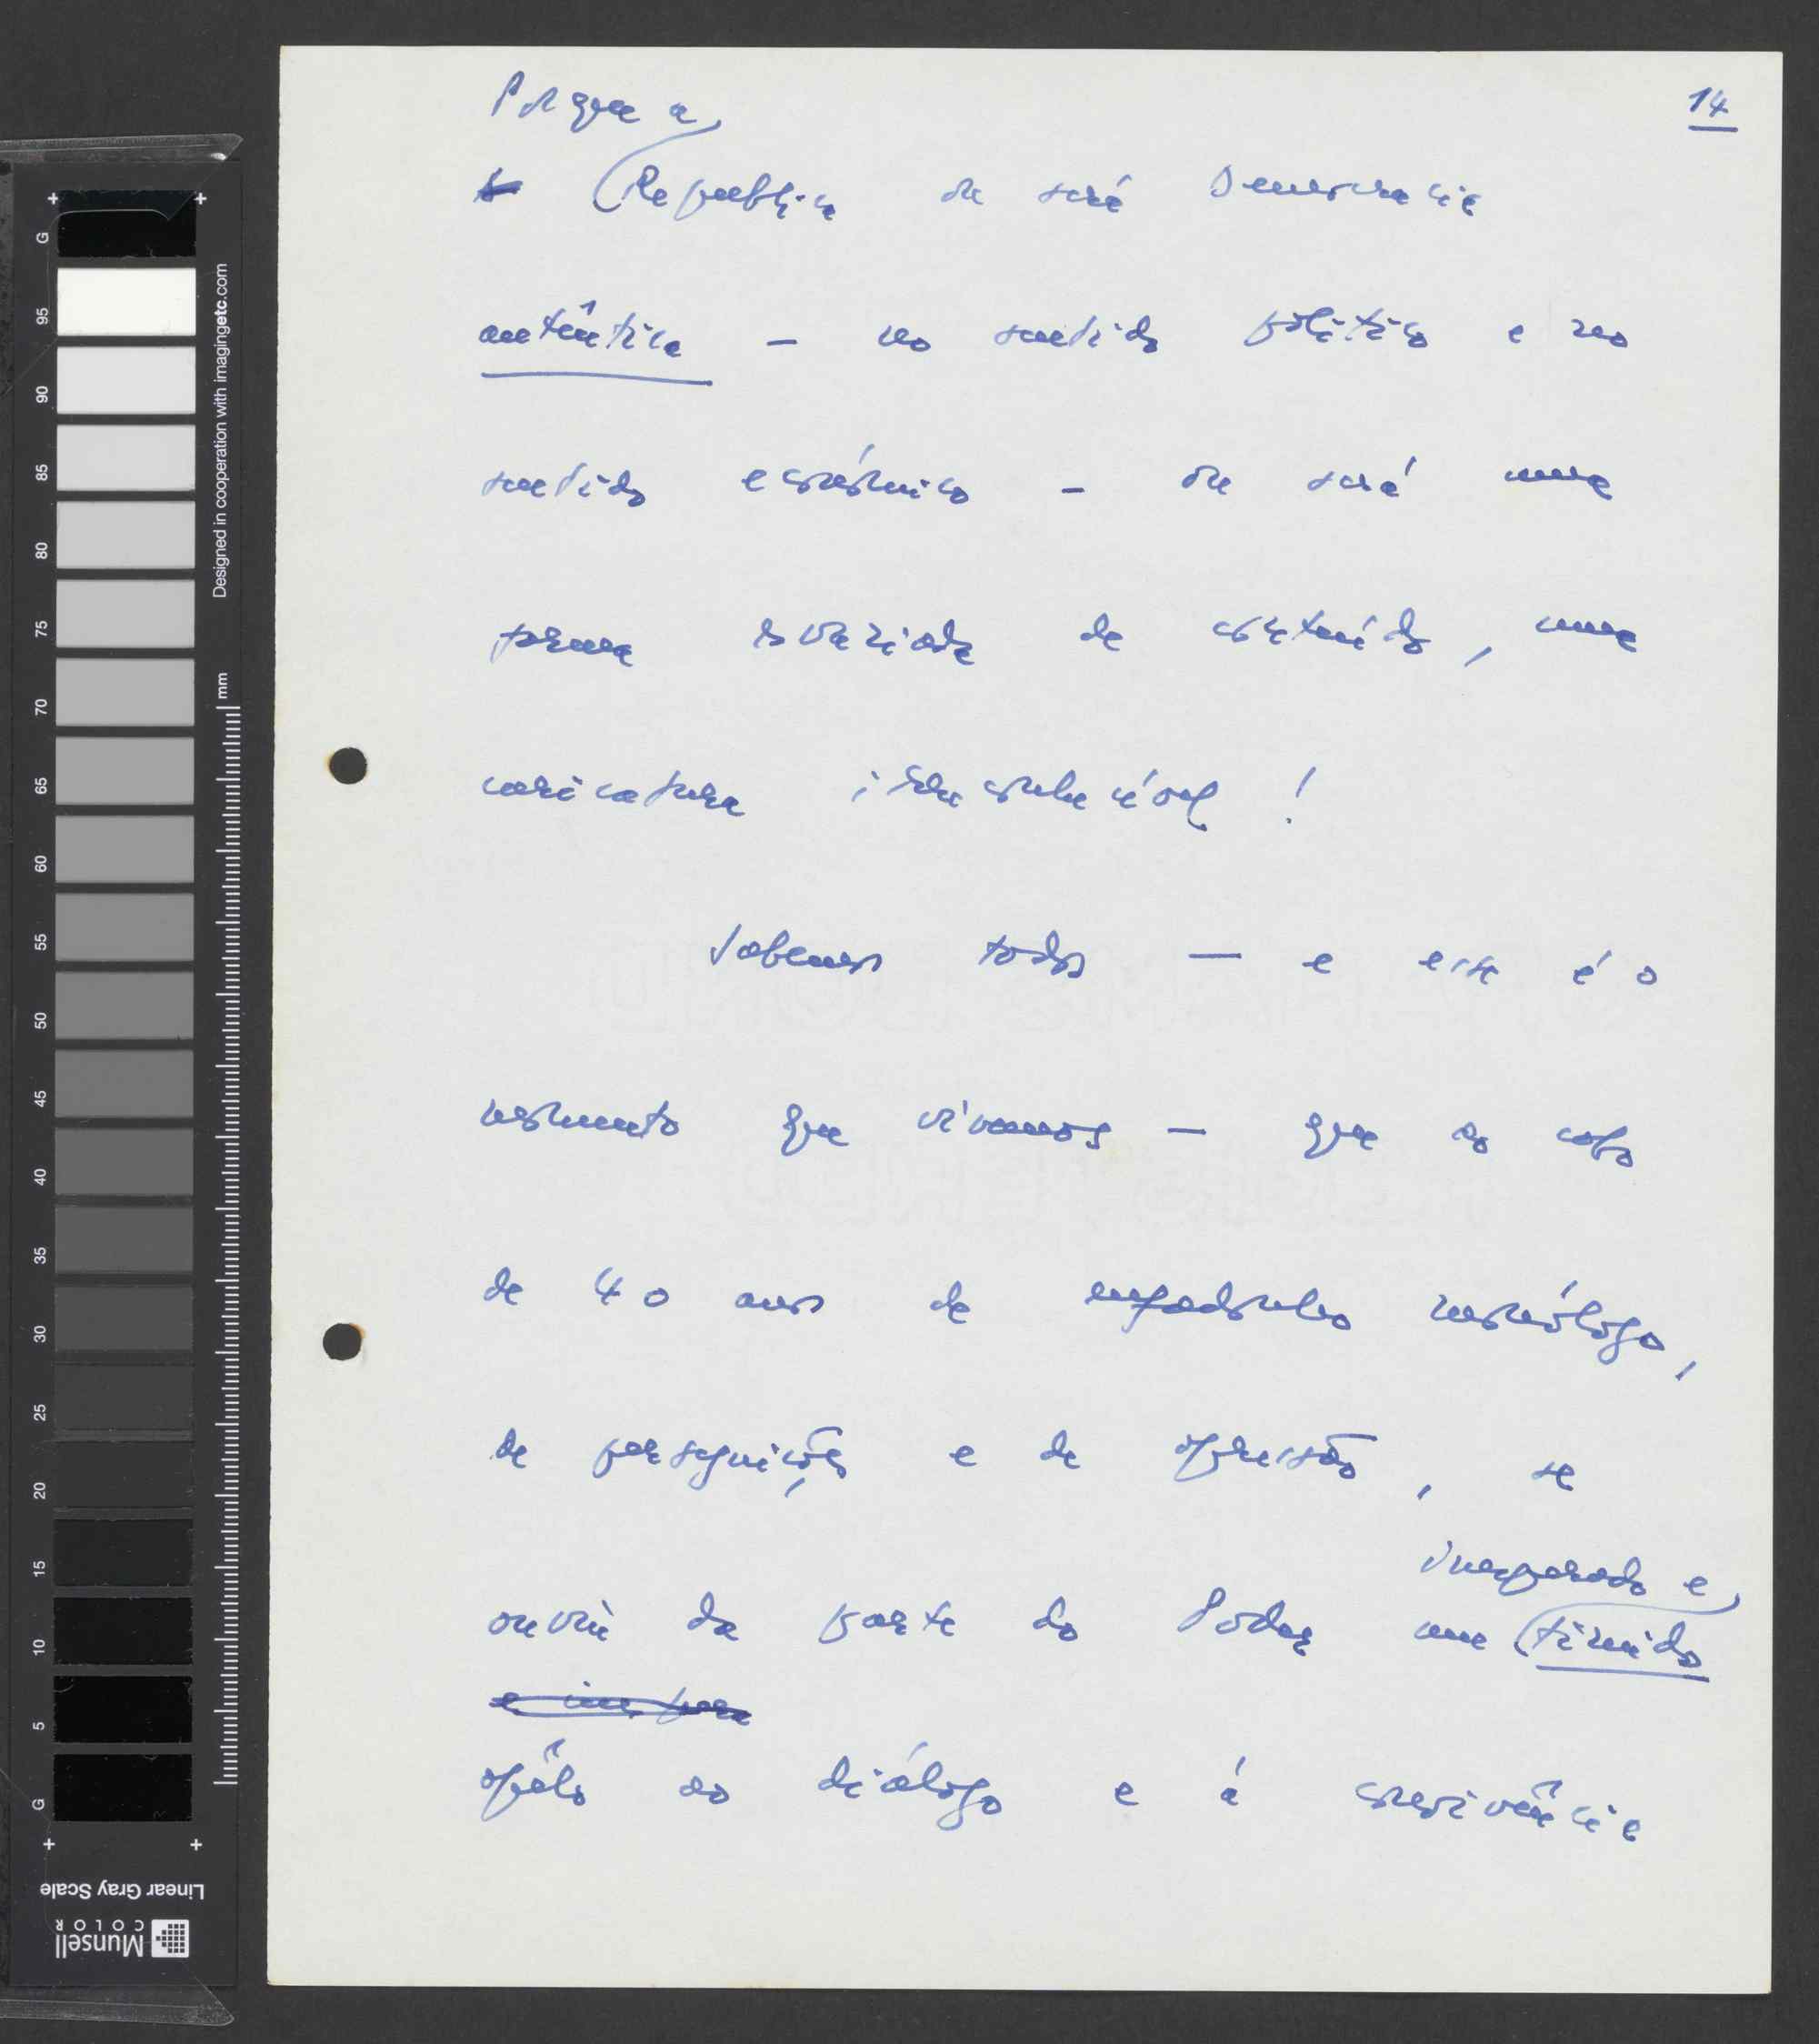 14
Porque a
República ou será Democracia
autêntica — no sentido político e no
sentido económico — ou será uma
forma esvaziada de conteúdo, uma
caricatura irreconhecível!
Sabemos todos — e esse é o
momento que vivemos — que ao cabo
de 40 anos de enfadonho monólogo,
de perseguições e de opressão, se
ouviu da parte do Poder um tímido
inesperado e
apêlo ao diálogo e á convivência
G
95
90
85
80
75
70
65
60
55
50
45
40
35
30
25
20
15
10
5
G
mm
Designed in cooperation with imagingetc.com
Linear Gray Scale
Munsell
COLOR